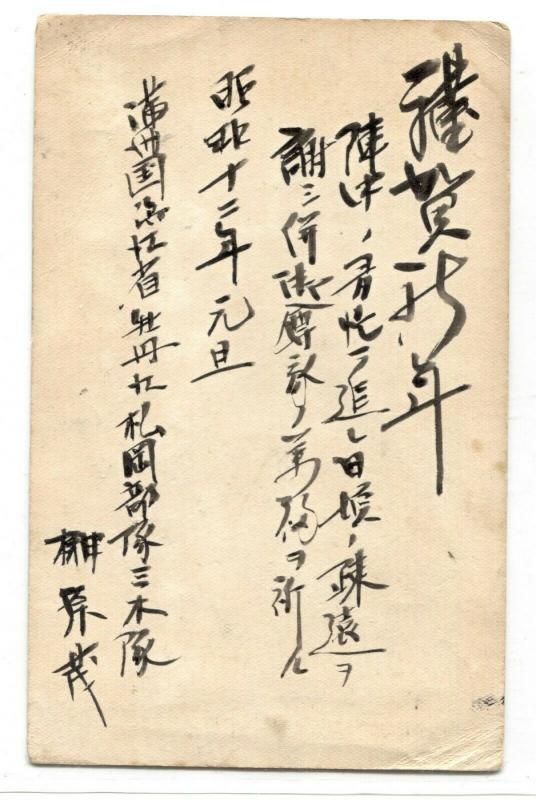 謹賀新年
陣中ノ多忙ニ追レ日頃ノ疎遠ヲ
謝シ併御尊家ノ萬福ヲ祈ル
昭和十二年元旦
満洲国浜江省牡丹江札岡部隊三木隊
榊原茂